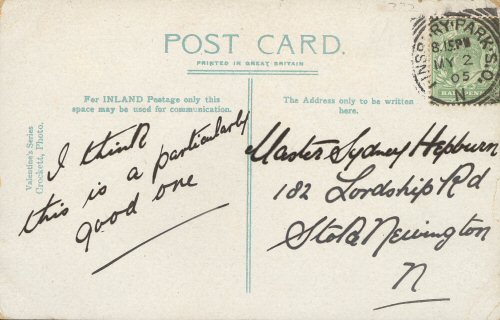 POST CARD.
PRINTED IN GREAT BRITAIN
For INLAND Postage only this
space may be used for communication.
The Address only to be written
here.
Valentine's Series
Crockett, Photo.
I think
this is a particularly
good one
Master Sydney Hepburn
182 Lordship Rd
Stoke Newington
N
NSBURY PARK S.O.
8.15PM
MY 2
05
N
HALFPENNY